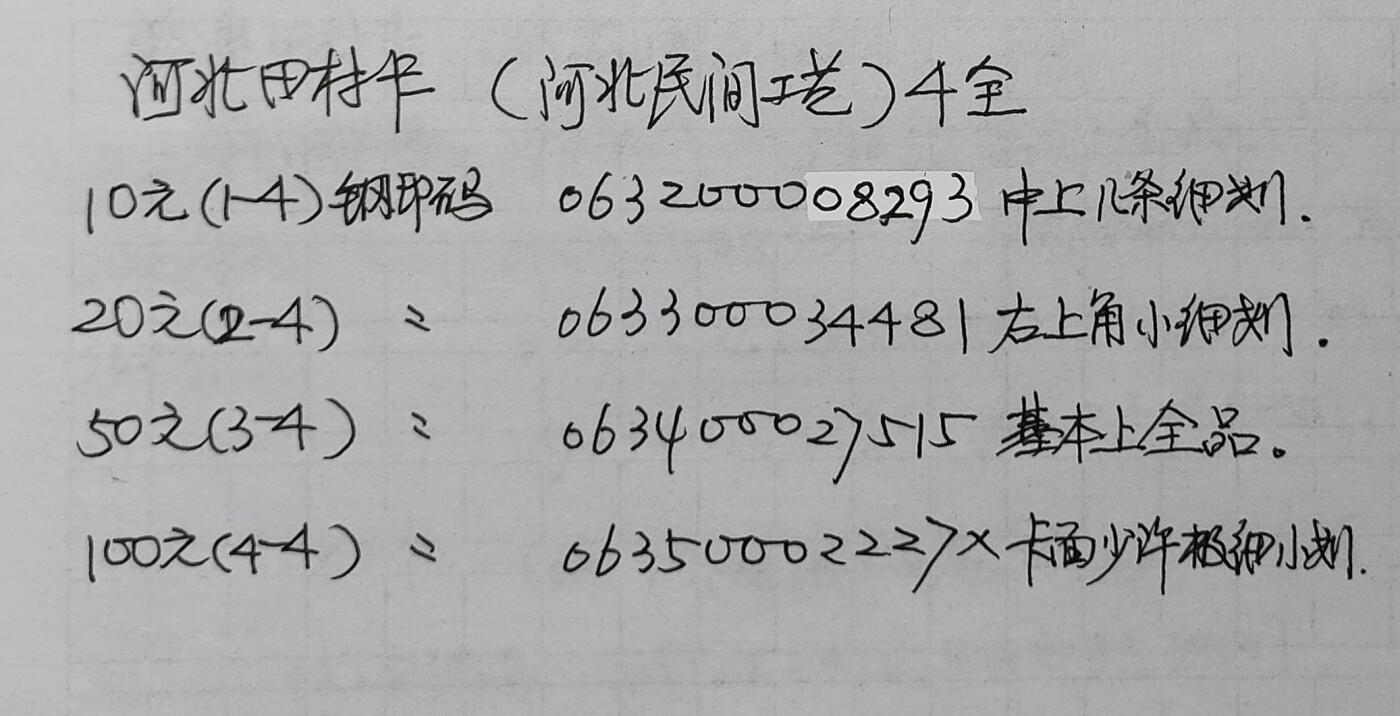 河北田村卡 (河北民间工艺)4全
10元(1-4)钢印码 063200008293 中上几条细划.
20元(2-4) 〃 063300034481 右上角小细划.
50元(3-4) 〃 063400027515 基本上全品。
100元(4-4) 〃 06350002227X 卡面少许极细小划.